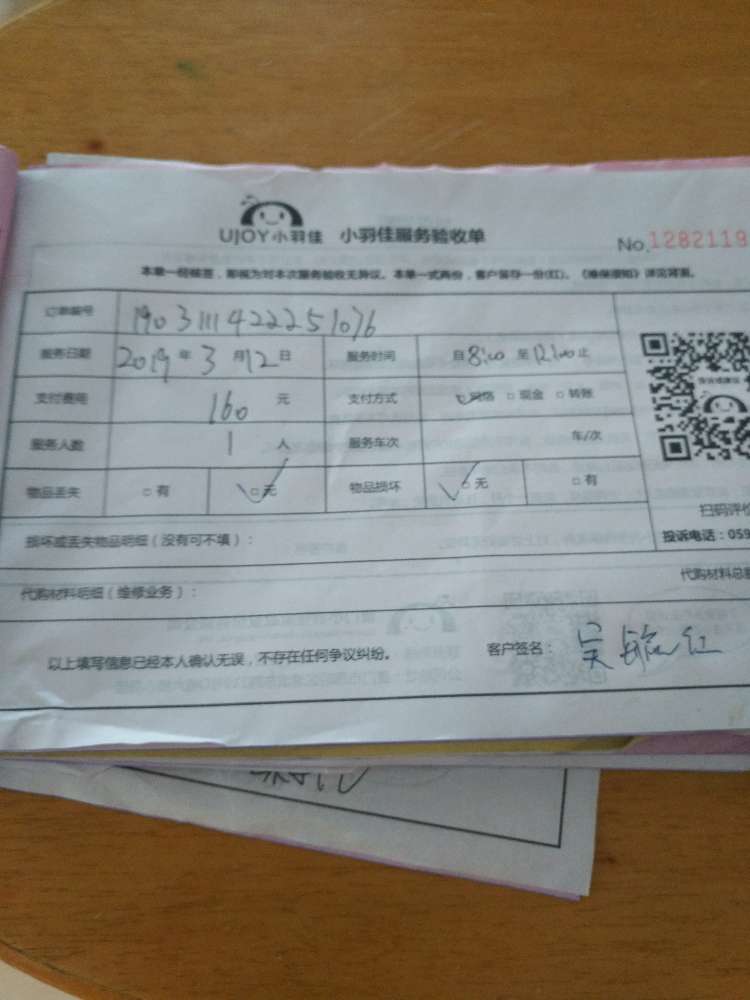 UJOY小羽佳 小羽佳服务验收单
No.1282119
本单一经核签，即视为对本次服务验收无异议。本单一式两份，客户留存一份(红)。《维保须知》详见背面。
订单编号 19031114222251076
服务日期 2019年3月12日 服务时间 自8:00至12:00止
支付费用 160元 支付方式 网络 现金 转账
服务人数 1人 服务车次 车/次
物品丢失 有 无 物品损坏 无 有
扫码评价
损坏或丢失物品明细（没有可不填）：
投诉电话：059
代购材料明细（维修业务）：
代购材料总
以上填写信息已经本人确认无误，不存在任何争议纠纷。 客户签名：